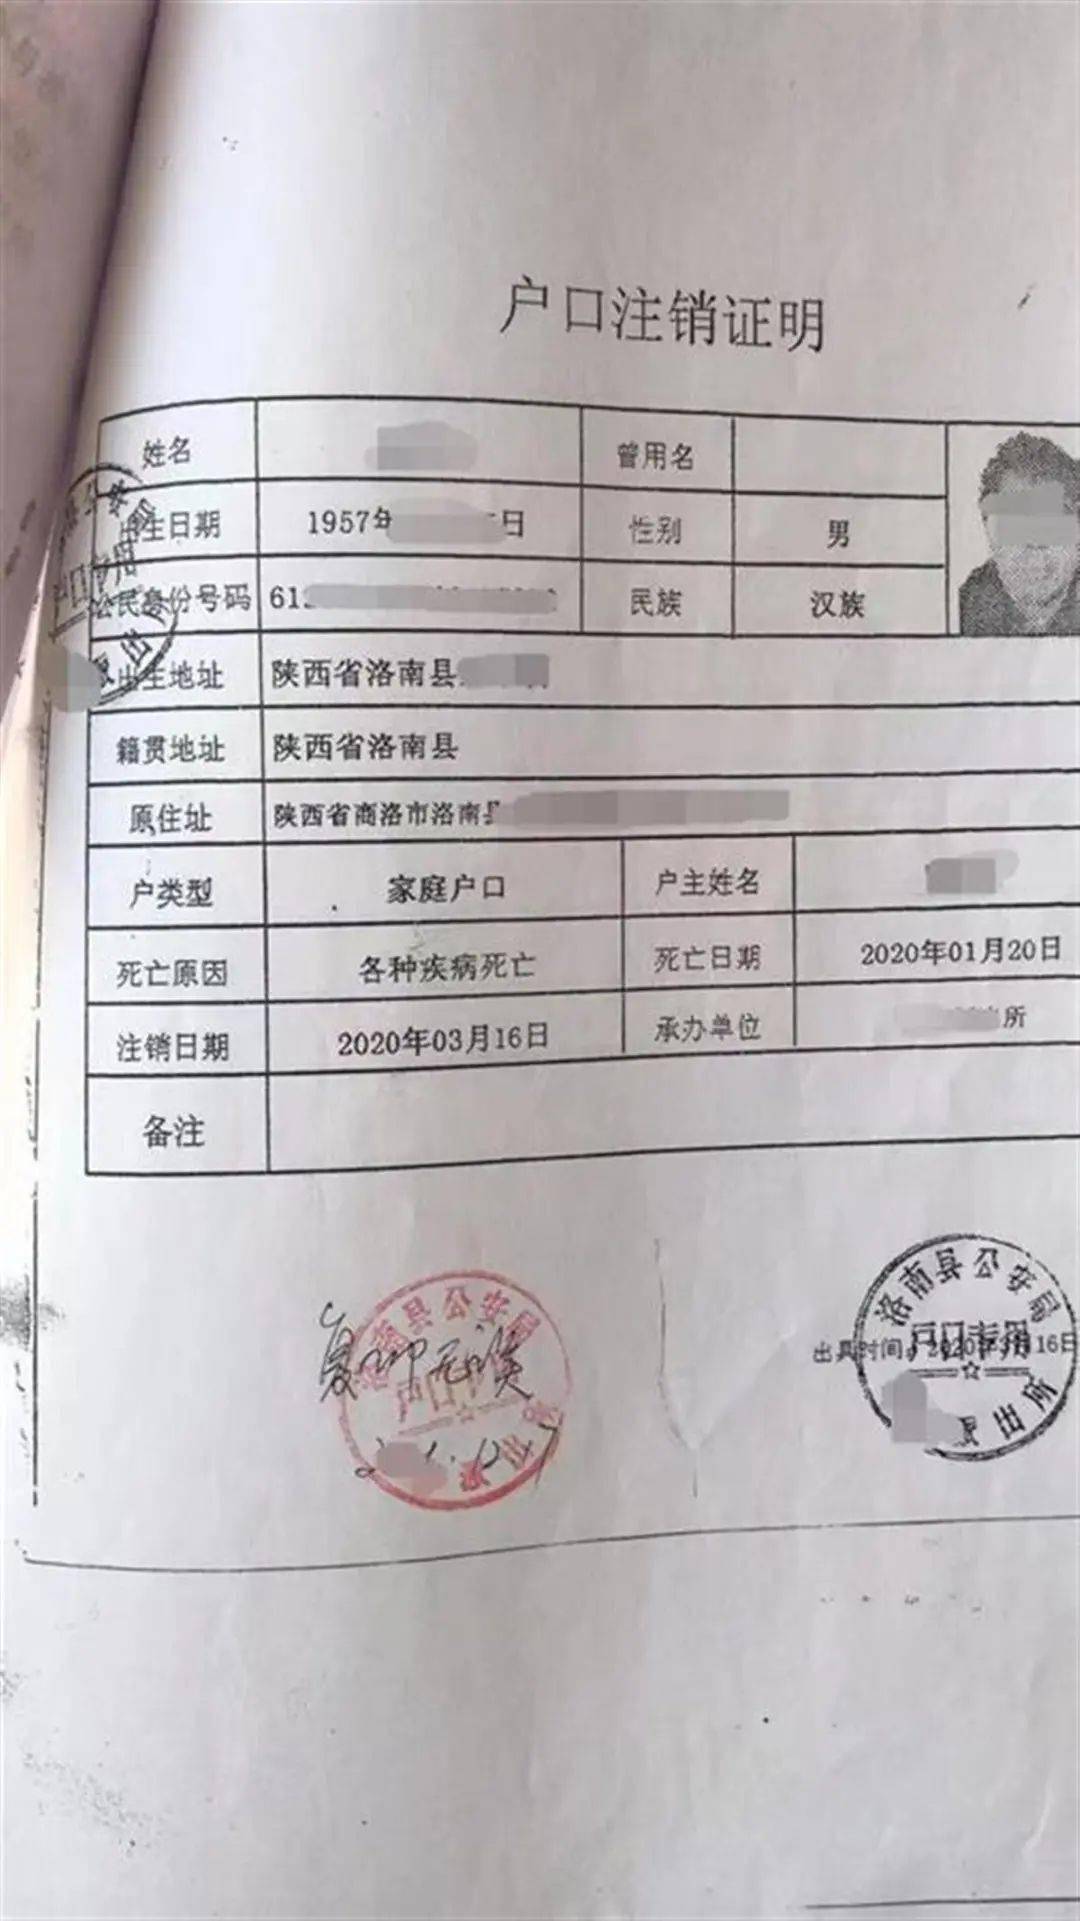 户口注销证明
姓名 曾用名
出生日期 1957年 日 性别 男
公民身份号码 61 民族 汉族
出生地址 陕西省洛南县
籍贯地址 陕西省洛南县
原住址 陕西省商洛市洛南县
户类型 家庭户口 户主姓名
死亡原因 各种疾病死亡 死亡日期 2020年01月20日
注销日期 2020年03月16日 承办单位 所
备注
洛南县公安局
户口专用
出具时间:2020年3月16日
派出所
洛南县公安局
复印无误
户口专用